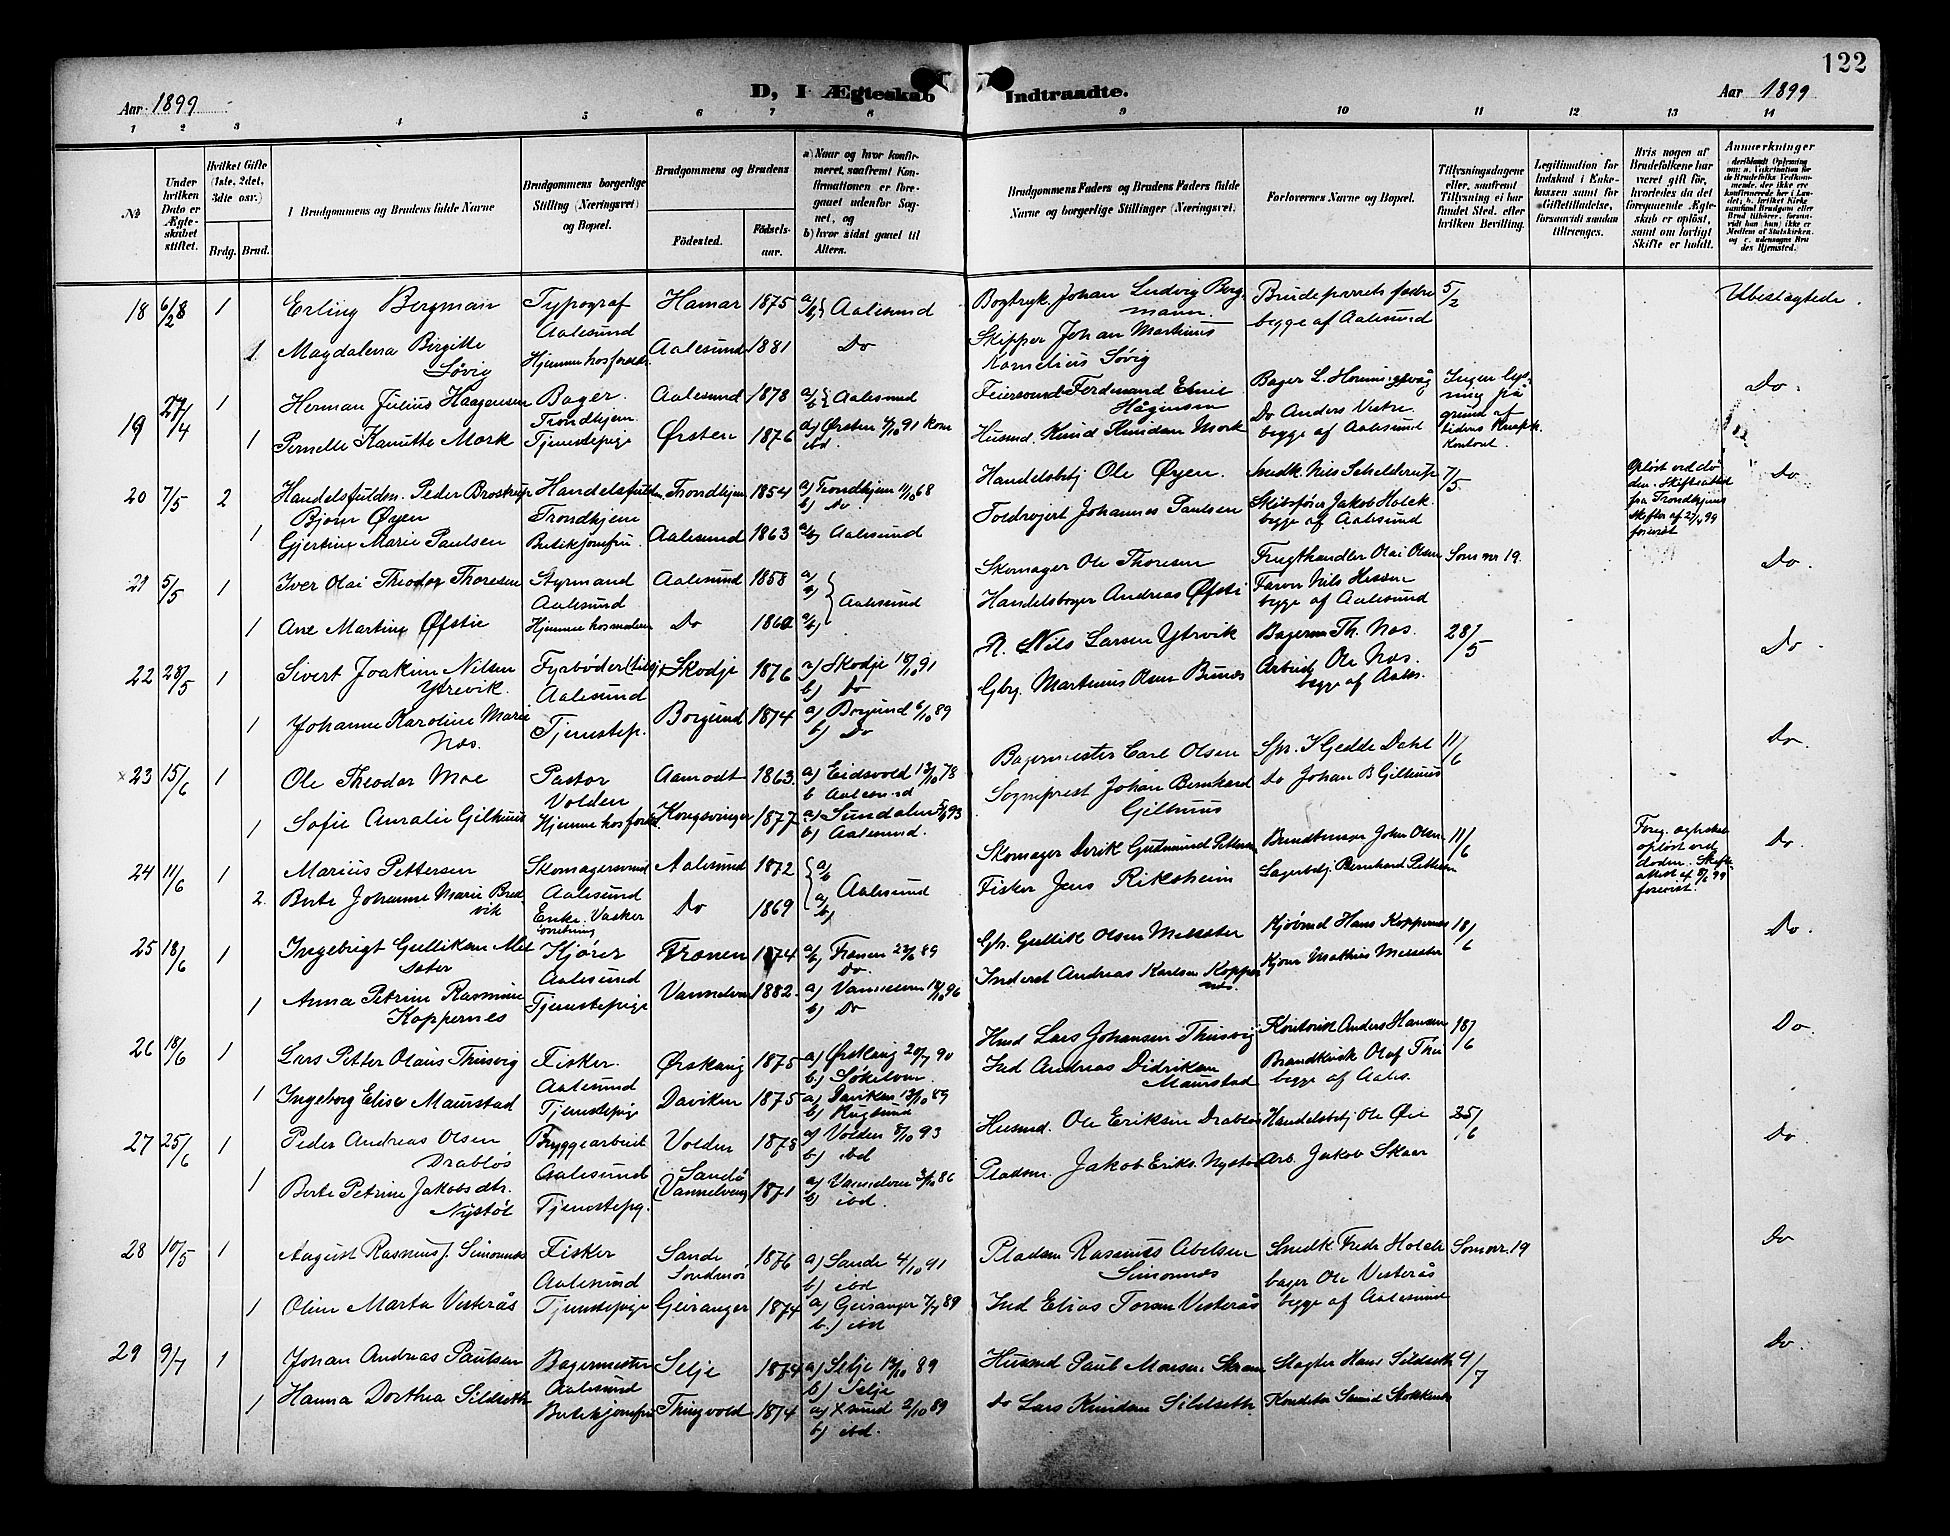 122
Aar 1899
D, I Ægteskab Indtraadte.
Aar 1899
1 2 3 4 5 6 7 8 9 10 11 12 13 14
No.
Under hvilken Dato er Ægteskabet stiftet.
Hvilket Gifte (1ste, 2det, 3die osv.)
Brdg. Brud.
Brudgommens og Brudens fulde Navne
Brudgommens borgerlige Stilling (Næringsvei) og Bopæl.
Brudgommens og Brudens
Fødested.
Fødselsaar.
a) Naar og hvor konfirmeret, saafremt Konfirmationen er foregaaet udenfor Sognet, og
b) hvor sidst gaaet til Alters.
Brudgommens Faders og Brudens Faders fulde Navne og borgerlige Stillinger (Næringsvei).
Forlovernes Navne og Bopæl.
Tillysningsdagene eller, saafremt Tillysning ei har fundet Sted, efter hvilken Bevilling.
Legitimation for Indskud i Enkekassen samt for Giftetilladelse, forsaavidt saadan tiltrænges.
Hvis nogen af Brudefolkene har været gift før, hvorledes da det foregaaende Ægteskab er opløst, samt om lovligt Skifte er holdt.
Anmærkninger
18 6/2 8 1 Erling Bergman Typograf Hamar 1875 a/b Aalesund Bogtryk. Johan Ludvig Bergmann. Brudeparrets fædre 5/2 Ubeslægtede.
Aalesund begge af Aalesund
1 Magdalena Birgitte Løvig Hjemme hos foreld. Aalesund 1881 Do Skipper Johan Martinus Kornelius Løvig
19 27/4 1 Herman Julius Haagensen Bager. Trondhjem Aalesund 1878 a/b Aalesund Feiersvend Ferdinand Emil Hågensen Bager L. Horningsvåg Ingen lysning på grund af tidens knaph. kontort Do.
1 Pernelle Kanutte Mork Tjenestepige Ørsten 1876 Ørsten 4/10 91 ibd. Husmd. Knud Knudsen Mork Do Anders Vestre begge af Aalesund
20 7/5 2 Handelsfuldm. Peder Brostrup Bjørn Øyen Handelsfuldm. Trondhjem Trondhjem 1854 a) Trondhjem 11/10 68 b) Do. Handelsbtj Ole Øyen. Snedk. Nils Schelderup 7/5 Opløst ved døden. Skifteattest fra Trondhjems Skifter af 27/4 99 forevist Do
1 Gjertine Marie Paulsen Butikjomfru Aalesund 1863 a/b Aalesund Toldrojert Johannes Paulsen Skibsfører Jakob Holck. begge af Aalesund
21 5/5 1 Iver Olai Theodor Thoresen Styrmand Aalesund Aalesund 1858 a) b) Aalesund Skomager Ole Thoresen Frugthandler Olai Olsen Som nr 19. Do.
1 Ane Martine Øfstie Hjemme hos moderen Do a/b Handelsborger Andreas Øfsti Farver Nils Hessen begge af Aalesund
22 28/5 1 Sivert Joakim Nilsen Ytrevik. Fyrbøder Aalesund Skodje 1876 a) Skodje 18/10 91 b) Do Nils Larsen Ytrvik Bagerm Th. Næs. 28/5 Do
1 Johanne Karoline Marie Næs. Tjenestep. Borgund 1874 a) Borgund 6/10 89 b) Do Gbg. Martinus Olsen Arbeid Ole Næs. begge af Aales.
×23 15/6 1 Ole Theodor Moe Pastor Volden Aamodt 1863. a) Eidsvold 13/10 78 b Aalesund Bagermester Carl Olsen Spr. K Gjedde Dahl 11/6 Do.
1 Sofie Amalie Gilhuus Hjemme hos foreld. Kongsvinger 1877 a) Sundalen 93 b) Aalesund. Sogneprest Johan Bernhard Gilhuus Do Johan B Gilhuus
24 11/6 1 Marius Pettersen Skomagersvend Aalesund Aalesund 1872 a/b Aalesund Skomager Gudmund Pettersen John Olsen 11/6 opløst ved døden. Skifteattest af 8/6 99 forevist. Do.
2. Berte Johanne Marie Bredvik Enke. Vaskerforretning Do 1869 a) b) Fisker Jens Riksheim Lagerbetj Bernhard Pettersen
25 18/6 1 Ingebrigt Gulliksen Melsæter Kjører Aalesund Frænen 1874 a/b Frænen 23/6 89 Do. Gbr. Gullik Olsen Melsæter Kjørmd Hans Koppernæs 18/6 Do.
1 Anna Petrine Rasmine Koppernes Tjenestepige Vannelven 1882. a) Vannelven 18/10 96 b) Do Inderst Andreas Karlsen Koppernæs. Kjører Mathias Melsæter
26 18/6 1 Lars Petter Olaus Thusvig Fisker. Aalesund Ørskoug 1875 a) Ørskoug 20/7 90 b) Søkelven. Hmd Lars Johansen Thusvig Kontorist Anders Hansen 18/6 Do
1 Ingeborg Elise Maurstad Tjenestepige Daviken 1875 a) Daviken 13/10 89 b) Rugsund Ind Andreas Didriksen Maurstad Olaf Thu begge af Aales.
27 25/6 1 Peder Andreas Olsen Drabløs Bryggearbeid Aalesund Volden 1875 a) Volden 8/10 93 b) ibd Husmd. Ole Eriksen Drabløs Handelsbetj Ole Øie 25/6 Do
1 Berte Petrine Jakobsdtr. Nystøl Tjenestepg. Sandø (Vannelven) 1871 a) Vannelven 3/10 86 b) ibd. Pladsm. Jakob Eriks. Nystøl Arb. Jakob Skaar
28 10/5 1 August Rasmus J. Simonnes Fisker Aalesund Sande Søndmør 1876 a) Sande 4/10 91 b) ibd Pladsm Rasmus Abelsen Simonnæs Snedk Fredr Holck Som nr. 19 Do
1 Oline Marta Vesterås Tjenestepige Geiranger 1874 a) Geiranger 7/7 89 b.) ibd Ind Elias Vesterås bager Ole Vesterås begge af Aalesund
29 9/7 1 Johan Andreas Paulsen Bagermester Aalesund Selje 1874 a) Selje 13/10 89 b) Selje Husmd Paul Monsen Skram Slagter Hans Sildseth 9/7 Do.
1 Hanna Dorthea Sildseth Butikjomfru Thingvold 1874 a) Xsund 2/10 89 b) ibd. Do Lars Knudsen Sildseth Konditor Stokkeseth